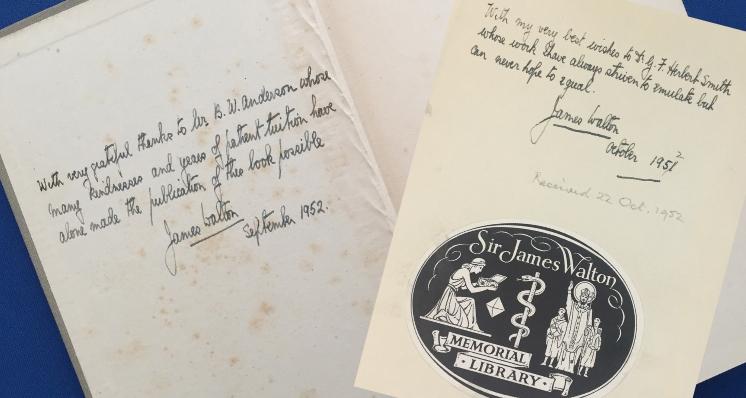 With very grateful thanks to Mr B. W. Anderson whose
many kindnesses and years of patient tuition have
alone made the publication of this book possible
James Walton
September 1952.
With my very best wishes to Dr G. F. Herbert Smith
whose work I have always striven to emulate but
can never hope to equal.
James Walton
October 1952
Received 22 Oct. 1952
Sir James Walton
MEMORIAL
LIBRARY